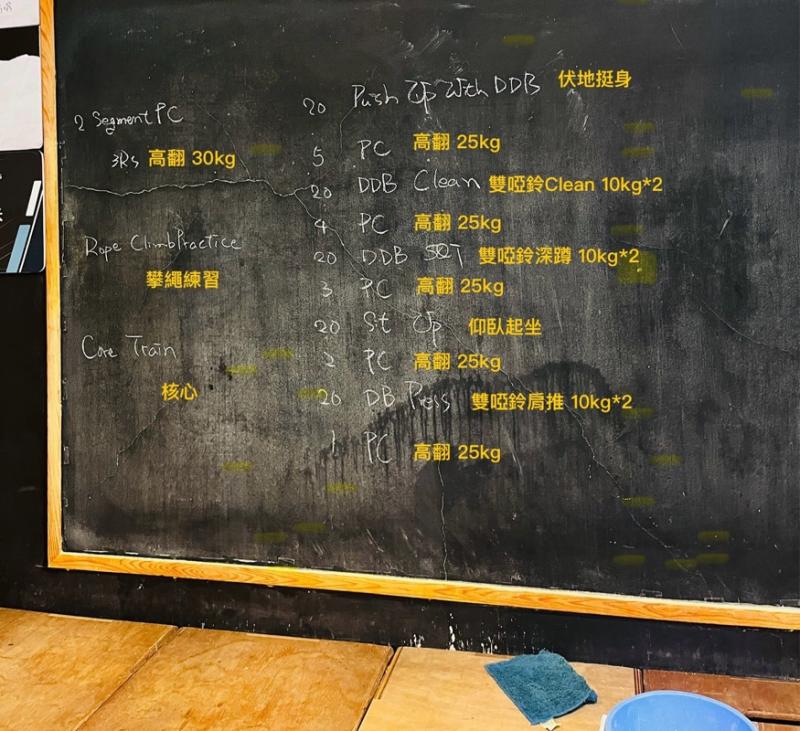 2 Segment PC
3Rs 高翻 30kg
Rope Climb Practice
攀繩練習
Core Train
核心
20 Push Up With DDB 伏地挺身
5 PC 高翻 25kg
20 DDB Clean 雙啞鈴Clean 10kg*2
4 PC 高翻 25kg
20 DDB SQT 雙啞鈴深蹲 10kg*2
3 PC 高翻 25kg
20 St Up 仰臥起坐
2 PC 高翻 25kg
20 DB Press 雙啞鈴肩推 10kg*2
1 PC 高翻 25kg